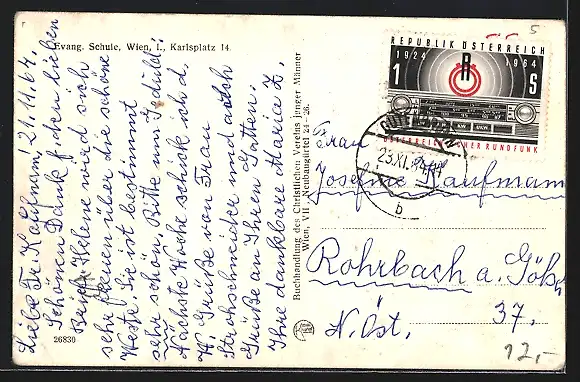 Evang. Schule, Wien, I., Karlsplatz 14
Liebe Fr. Kaufmann! 21.11.64.
Schönen Dank f. den lieben
Brief. Helene wird sich
sehr freuen über die schöne
Weste. Sie ist bestimmt
sehr schön. Bitte um Geduld!
Nächste Woche schick ich d.
W. Grüße von Frau
Strohschneider und auch
Grüße an Ihren Gatten.
Ihre dankbare Maria Z.
26830
Buchhandlung des Christlichen Vereins junger Männer
Wien, VII Neubaugürtel 24 - 26.
REPUBLIK ÖSTERREICH
1924 1964
R
1 S
KW UKW
ÖSTERREICHISCHER RUNDFUNK
23.XI.64
b
Frau
Josefine Kaufmann
Rohrbach a. Göls
37.
N.Öst.
12,-
5